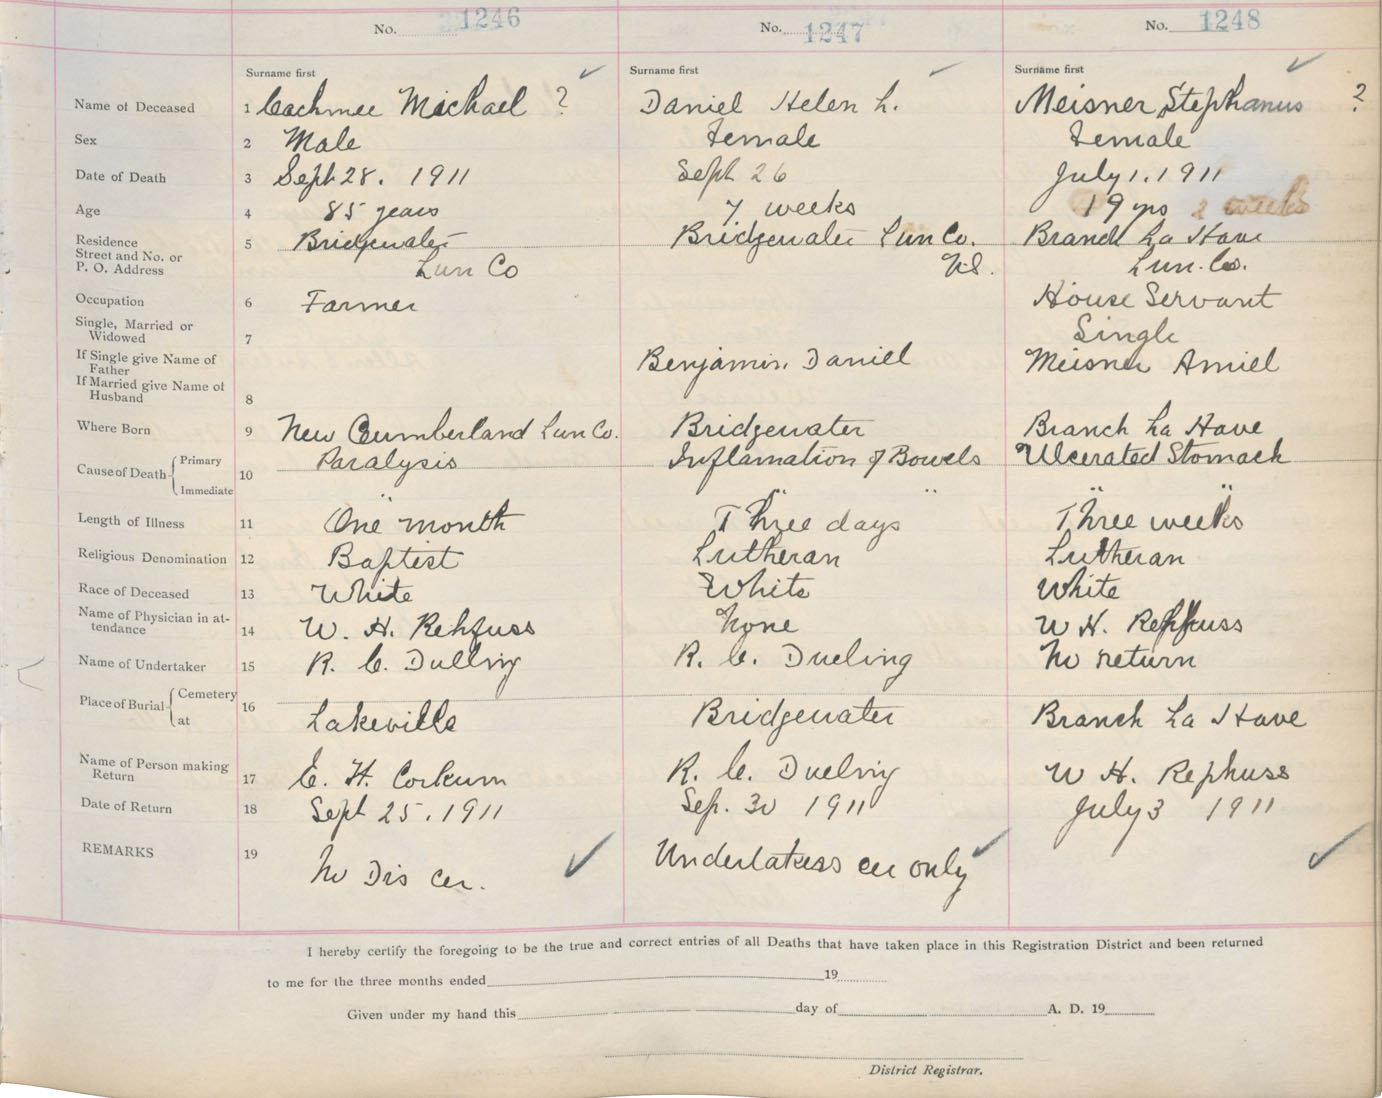 No. 1246
No. 1247
No. 1248
Surname first
Surname first
Surname first
Name of Deceased 1 Michael ? Daniel Helen L. Meisner Stephanus ?
Sex 2 Male Female Female
Date of Death 3 Sept 28. 1911 Sept 26 July 1. 1911
Age 4 85 years 7 weeks 19 yrs 2 weeks
Residence 5 Bridgewater Bridgewater Lun Co. Branch La Have
Street and No. or P. O. Address Lun Co N.S. Lun. Co.
Occupation 6 Farmer House Servant
Single, Married or Widowed 7 Single
If Single give Name of Father Benjamin Daniel Meisner Amiel
If Married give Name of Husband 8
Where Born 9 New Cumberland Lun Co. Bridgewater Branch La Have
Cause of Death Primary 10 Paralysis Inflamation of Bowels Ulcerated Stomach
Immediate " " " " "
Length of Illness 11 One month Three days Three weeks
Religious Denomination 12 Baptist Lutheran Lutheran
Race of Deceased 13 White White White
Name of Physician in attendance 14 W. H. Rehfuss None W H. Rehfuss
Name of Undertaker 15 R. C. R. C. Dueling No return
Place of Burial Cemetery 16
at Lakeville Bridgewater Branch La Have
Name of Person making Return 17 E. H. Corkum R. C. W H. Rephuss
Date of Return 18 Sept 25. 1911 Sep. 30 1911 July 3 1911
REMARKS 19 No Dis cer. Undertakers cer only
I hereby certify the foregoing to be the true and correct entries of all Deaths that have taken place in this Registration District and been returned
to me for the three months ended 19
Given under my hand this day of A. D. 19
District Registrar.